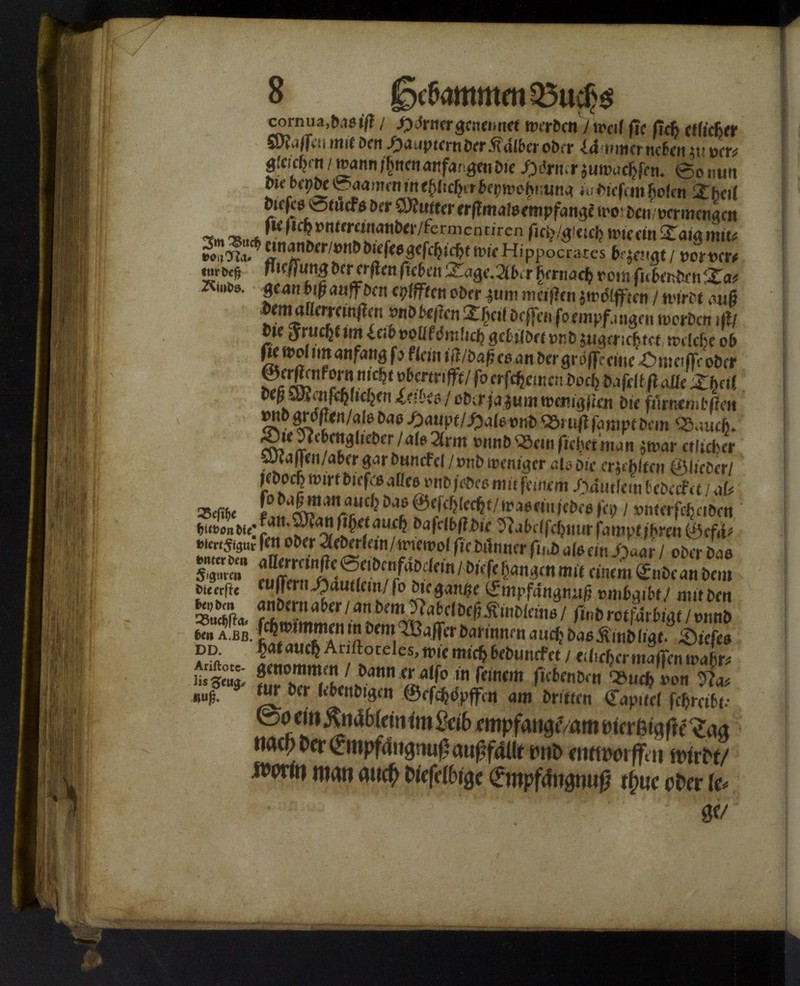 8 Hebammen Buchs
cornua, das ist / Hörner genennet werden / weil sie sich etlicher
Massen mit den Häuptern der Kälber oder Lämmer neben zu ver⸗
gleichen / wann jhnen anfangen die Hörner zuwachsen. So nun
die beyde Saamen in ehlicher beywohnung in diesem holen Theil
dieses Stücks der Mutter erstmals empfangē worden / vermengen
sie sich vntereinander / fermentiren sich / gleich wie ein Taig mit⸗
Im Buch
von Na⸗
tur deß
Kinds.
einander / vnd dieses geschicht wie Hippocrates bezeugt / vor ver⸗
fliessung der ersten sieben Tage. Aber hernach vom siebenden Ta⸗
ge an biß auff den eylfften oder zum meisten zwölfften / wirdt auß
dem allerreinsten vnd besten Theil dessen so empfangen worden ist /
die Frucht im Leib vollkömlich gebildet vnd zugerichtet, welche ob
sie wol im anfang so klein ist / daß es an der grösse eine Omeisse oder
Gerstenkorn nicht vbertrifft / so erscheinen doch daselbst alle Theil
deß Menschlichen Leibes / oder ja zum wenigsten die fürnembsten
vnd grösten / als das Haupt / Hals vnd Brust sampt dem Bauch.
Die Nebenglieder / als Arm vnnd Bein siehet man zwar etlicher
Massen / aber gar dunckel / vnd weniger als die erzehlten Glieder /
jedoch wirt dieses alles vnd jedes mit seinem Häutlein bedecket / al⸗
so daß man auch das Geschlecht / was ein jedes sey / vnterscheiden
Besihe
hievon die
viert Figur
vnter den
Figuren
die erste
bey den
Buchsta⸗
ben A. BB.
DD.
kan. Man sihet auch daselbst die Nabelschnur sampt jhren Gefä⸗
sen oder Aederlein / wiewol sie dünner sind als ein Haar / oder das
allerreinste Seidenfädelein / diese hangen mit einem Ende an dem
eussern Häutlein / so die gantze Empfängnuß vmbgibt / mit den
andern aber / an dem Nabel deß Kindleins / sind rotfärbigt / vnnd
schwimmen in dem Wasser darinnen auch das Kind ligt. Dieses
hat auch Aristoteles, wie mich beduncket / etlicher massen wahr⸗
Aristote⸗
lis Zeug⸗
nuß.
genommen / dann er also in seinem siebenden Buch von Na⸗
tur der lebendigen Geschöpffen am dritten Capitel schreibt:
So ein Knäblein im Leib empfangē / am viertzigstē Tag
nach der Empfängnuß außfällt vnd entworffen wirdt /
worin man auch dieselbige Empfängnuß thue oder le⸗
ge /